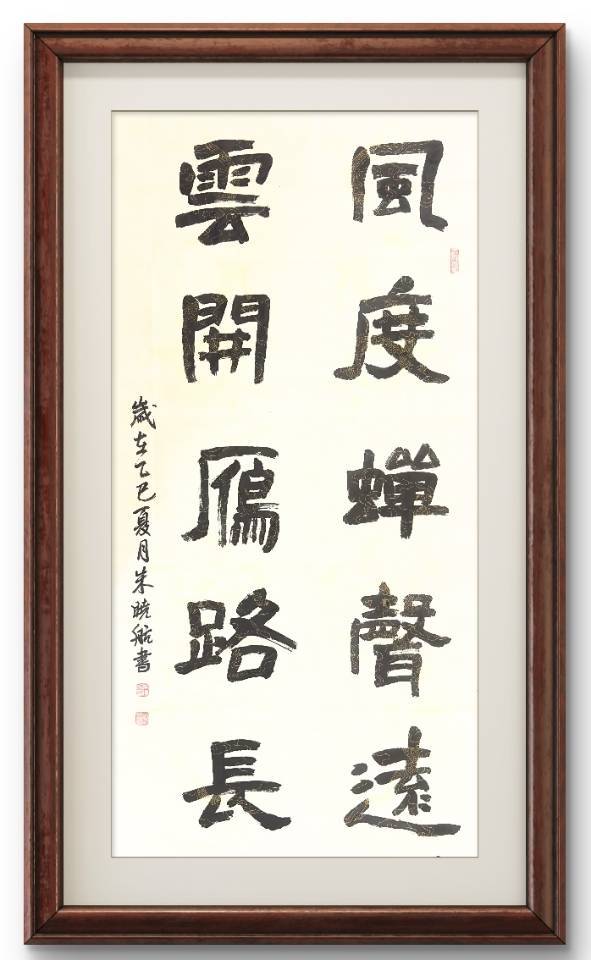 風度蟬聲遠
雲開鴈路長
歲在乙巳夏月朱曉航書